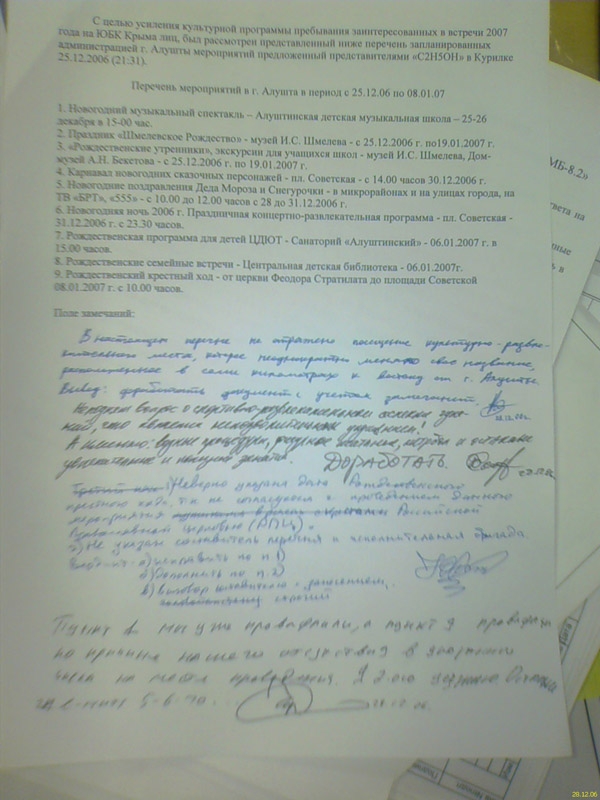 С целью усиления культурной программы пребывания заинтересованных в встречи 2007
года на ЮБК Крыма лиц, был рассмотрен представленный ниже перечень запланированных
администрацией г. Алушты мероприятий предложенный представителями «С2Н5ОН» в Курилке
25.12.2006 (21:31).
Перечень мероприятий в г. Алушта в период с 25.12.06 по 08.01.07
1. Новогодний музыкальный спектакль – Алуштинская детская музыкальная школа – 25-26
декабря в 15-00 час.
2. Праздник «Шмелевское Рождество» - музей И.С. Шмелева - с 25.12.2006 г. по19.01.2007 г.
3. «Рождественские утренники», экскурсии для учащихся школ - музей И.С. Шмелева, Дом-
музей А.Н. Бекетова - с 25.12.2006 г. по 19.01.2007 г.
4. Карнавал новогодних сказочных персонажей - пл. Советская - с 14.00 часов 30.12.2006 г.
5. Новогодние поздравления Деда Мороза и Снегурочки - в микрорайонах и на улицах города, на
ТВ «БРТ», «555» - с 10.00 до 12.00 часов с 28 до 31.12.2006 г.
6. Новогодняя ночь 2006 г. Праздничная концертно-развлекательная программа - пл. Советская -
31.12.2006 г. с 23.30 часов.
7. Рождественская программа для детей ЦДЮТ - Санаторий «Алуштинский» - 06.01.2007 г. в
15.00 часов.
8. Рождественские семейные встречи - Центральная детская библиотека - 06.01.2007г.
9. Рождественский крестный ход - от церкви Феодора Стратилата до площади Советской
08.01.2007 г. с 10.00 часов.
Поле замечаний:
В настоящем перечне не отражено посещение культурно-развле-
кательного места, которое неоднократно меняло свое название,
расположенное в семи километрах к востоку от г. Алушты.
Вывод: доработать документ с учетом замечаний.
вопрос о спортивно-развлекательном
что является непозволительным упущением!
А именно: водные процедуры, фигурное катание,
ДОРАБОТАТЬ.
1) Неверно указана дата Рождественского
крестного хода, т.к. не согласуется с проведением данного
мероприятия Российской
Православной церковью (РПЦ).
2) Не указан составитель перечня и исполнительная бригада.
а) исправить по п. 1)
б) дополнить по п. 2)
в) выговор с занесением,
строгий
Пункт 1 мы уже профафали, а пункт 9 профафали
по причине нашего отсутствия в
числа на месте проведения. Я
5-6-10...
28.12.06
МБ-8.2»
ответа на
28.12.06